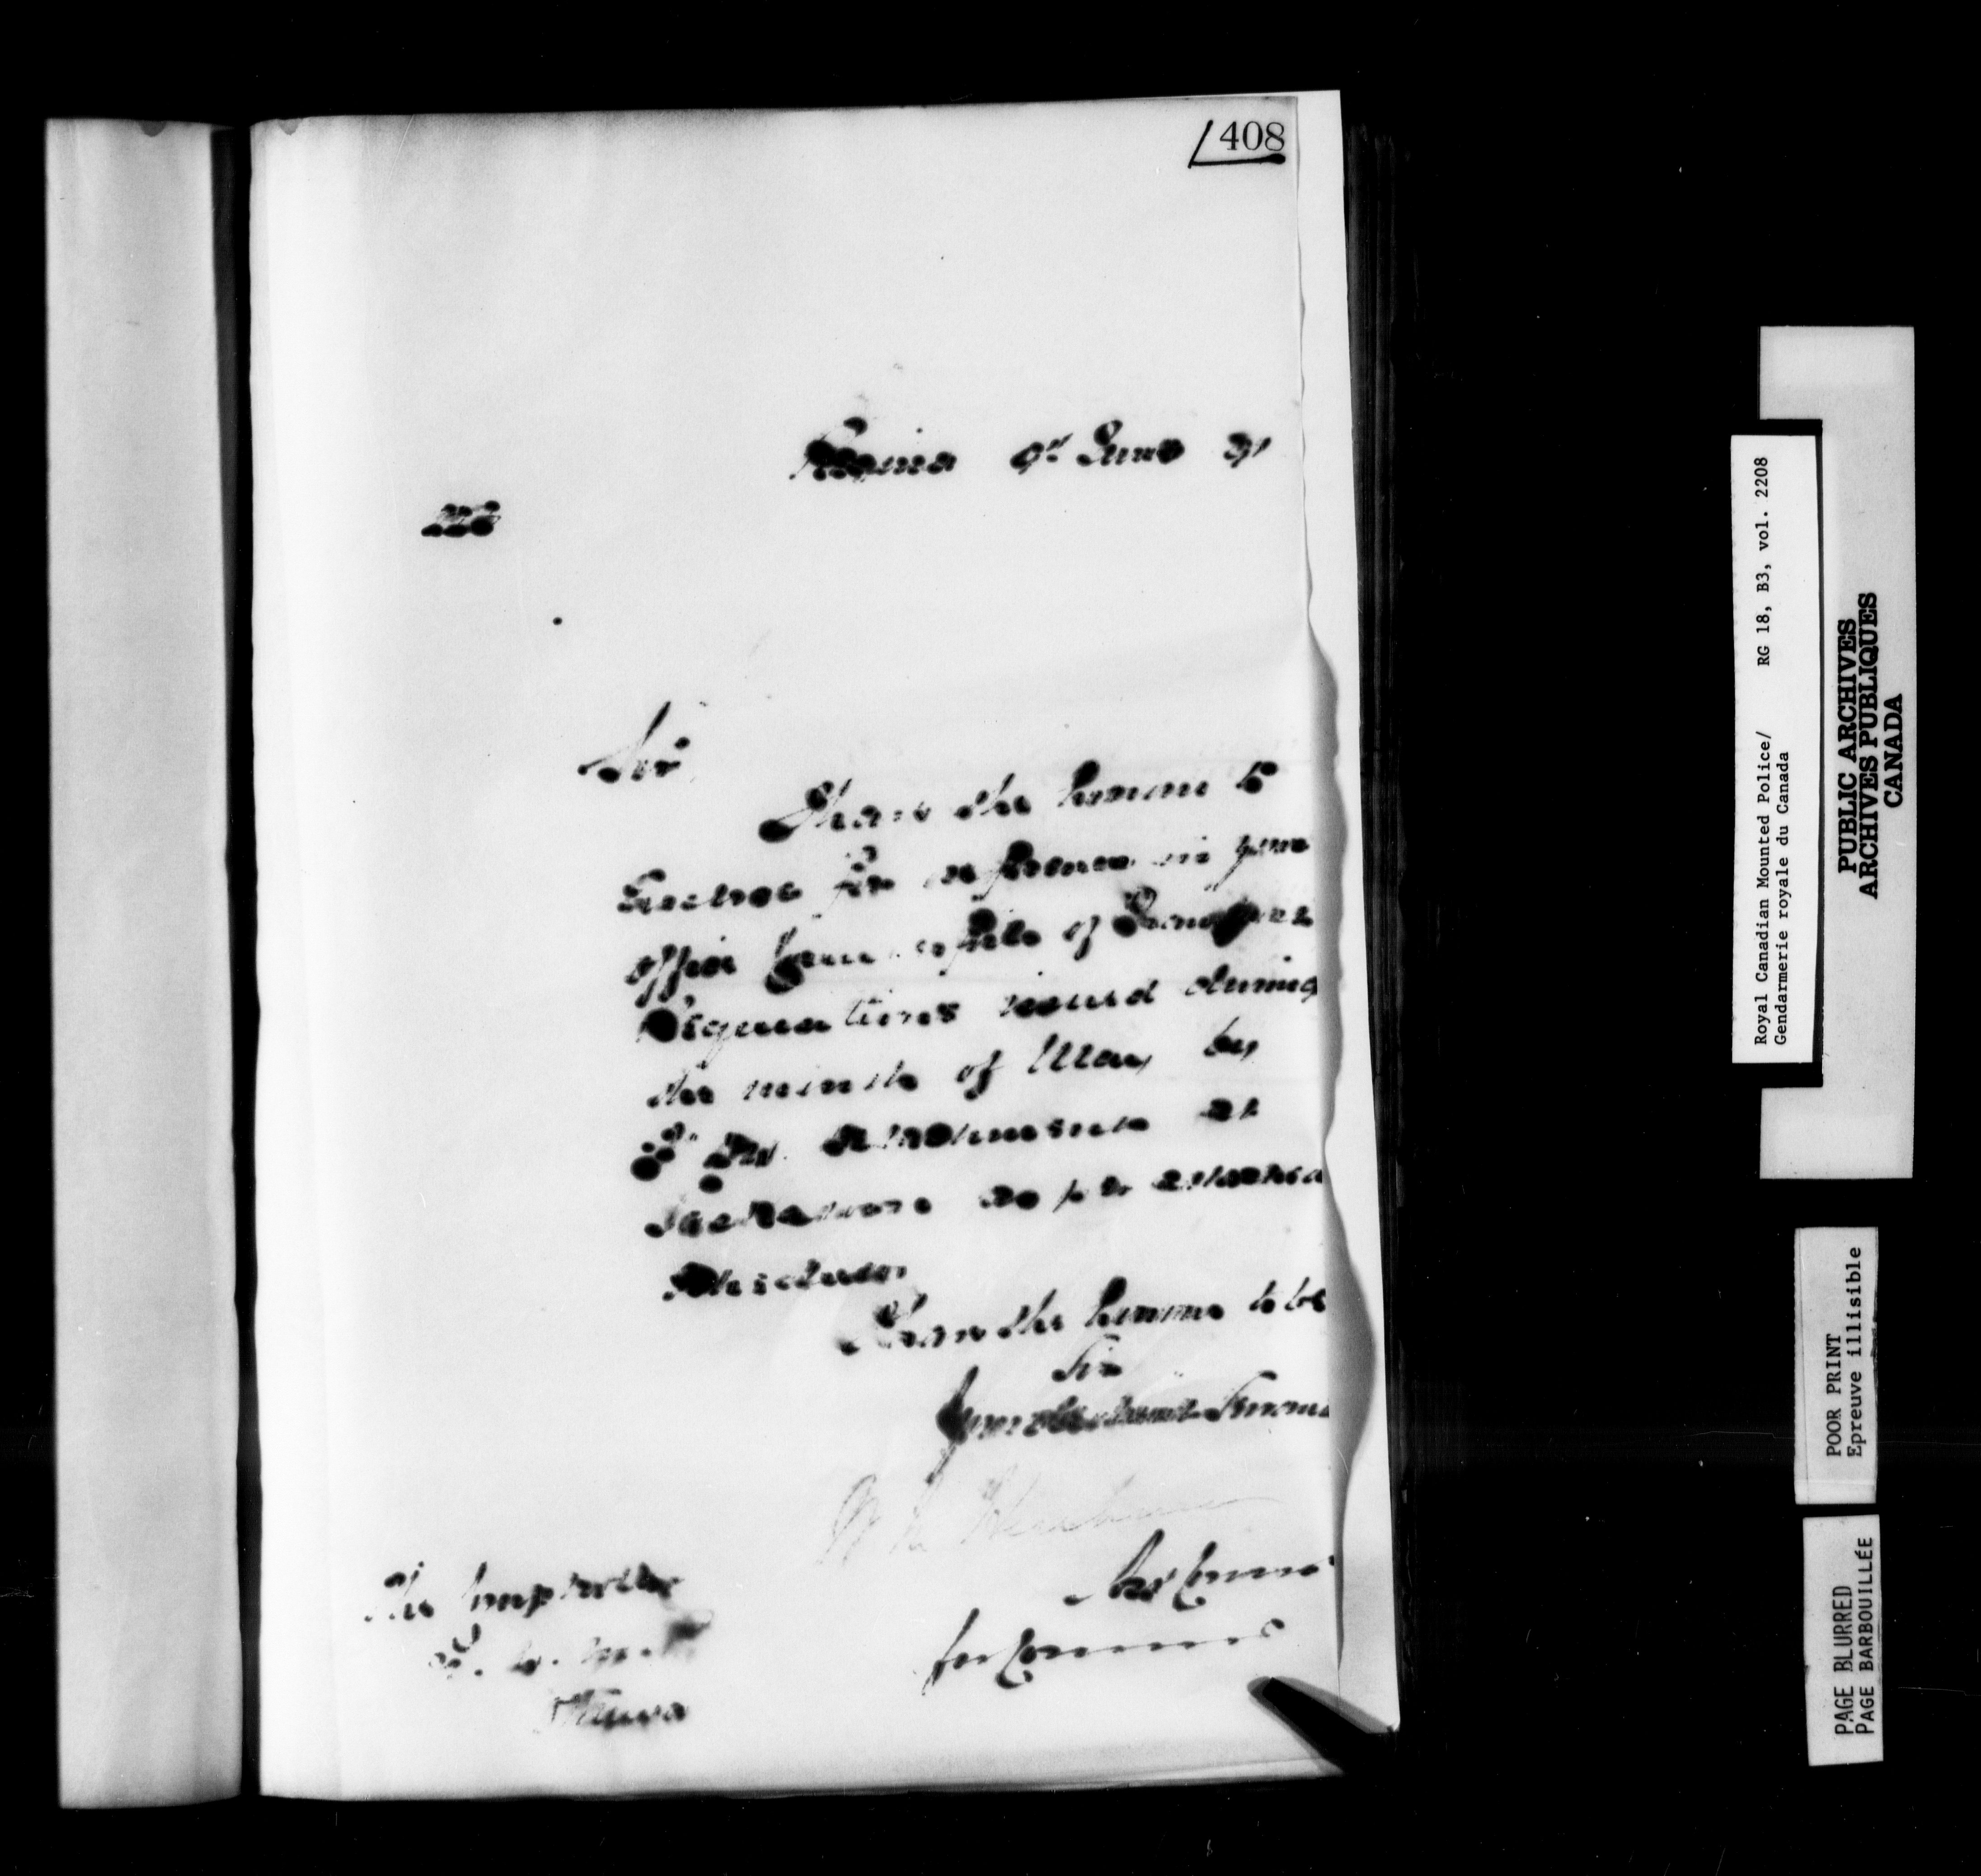 408
Regina 9th June 91
Sir
I have the honour to
Enclose for reference in your
office fyles of Transport
Requisitions issued during
the month of May by
at
as per attached
Schedule
I have the honour to be
Sir
Your Obedient Servant
Asst Commr
for Commr
The Comptroller
N. W. M. P.
Ottawa
Royal Canadian Mounted Police/ RG 18, B3, vol. 2208
Gendarmerie royale du Canada
PUBLIC ARCHIVES
ARCHIVES PUBLIQUES
CANADA
POOR PRINT
Epreuve illisible
PAGE BLURRED
PAGE BARBOUILLÉE